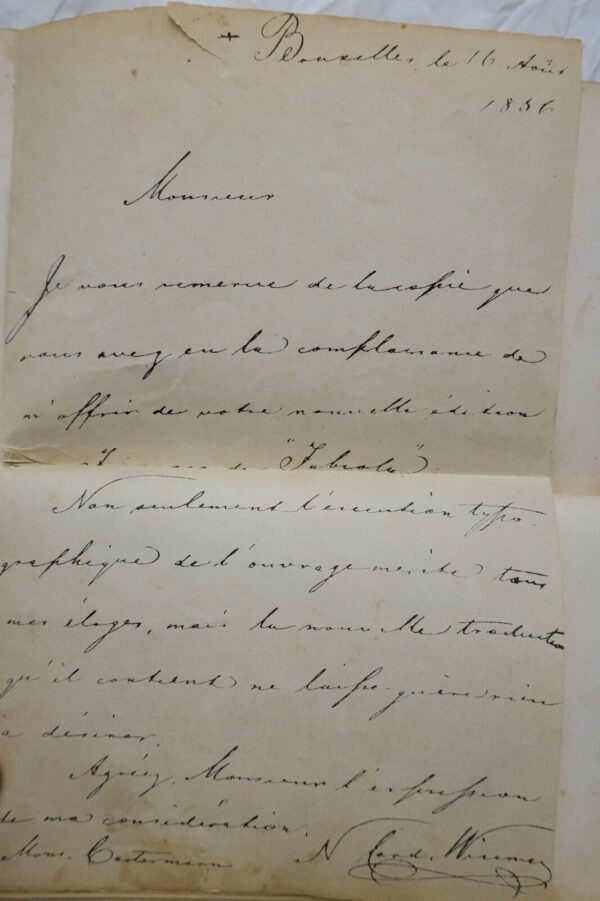 + Bruxelles, le 16 Août
1856
Monsieur
Je vous remercie de la copie que
vous avez eu la complaisance de
m'offrir de votre nouvelle édition
de "Fabiola".
Non seulement l'exécution typo-
graphique de l'ouvrage mérite tous
mes éloges, mais la nouvelle traduction
qu'il contient ne laisse guère rien
à désirer.
Agréez, Monsieur l'expression
de ma considération.
Mons. Castermann N Card. Wiseman